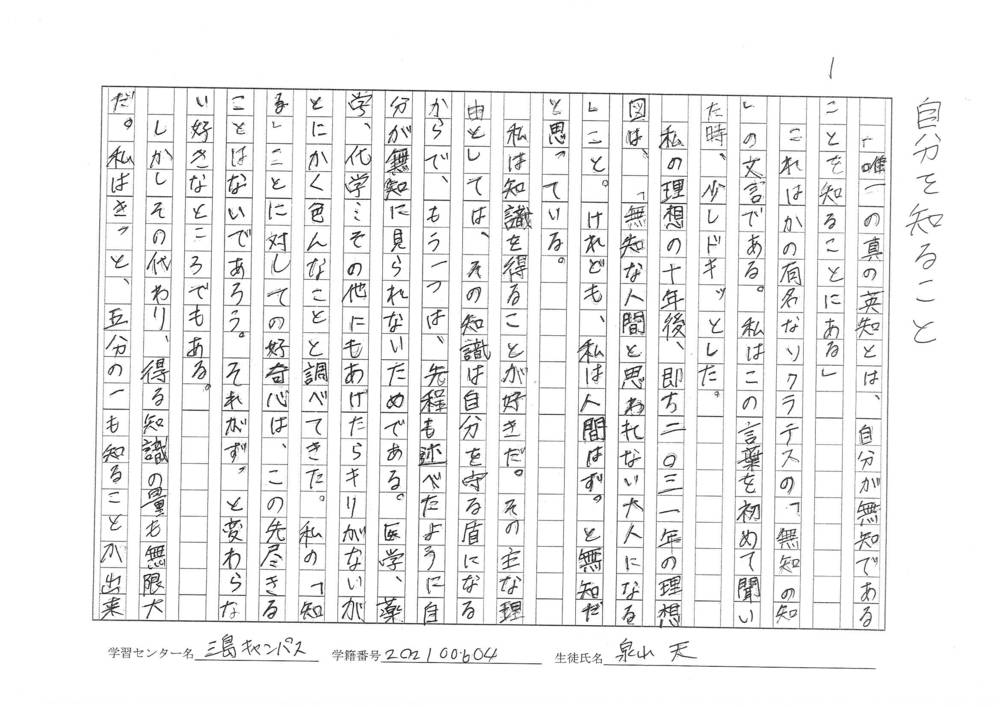 1
自分を知ること
「唯一の真の英知とは、自分が無知である
ことを知ることにある」
これはかの有名なソクラテスの「無知の知
」の文言である。私はこの言葉を初めて聞い
た時、少しドキッとした。
私の理想の十年後、即ち二〇三一年の理想
図は、「無知な人間と思われない大人になる
」こと。けれども、私は人間はずっと無知だ
と思っている。
私は知識を得ることが好きだ。その主な理
由としては、その知識は自分を守る盾になる
からで、もう一つは、先程も述べたように自
分が無知に見られないためである。医学、薬
学、化学…その他にもあげたらキリがないが
とにかく色んなことと調べてきた。私の「知
る」ことに対しての好奇心は、この先尽きる
ことはないであろう。それがずっと変わらな
い好きなところでもある。
しかしその代わり、得る知識の量も無限大
だ。私はきっと、五分の一も知ることが出来
学習センター名 三島キャンパス 学籍番号 202100604 生徒氏名 泉山 天